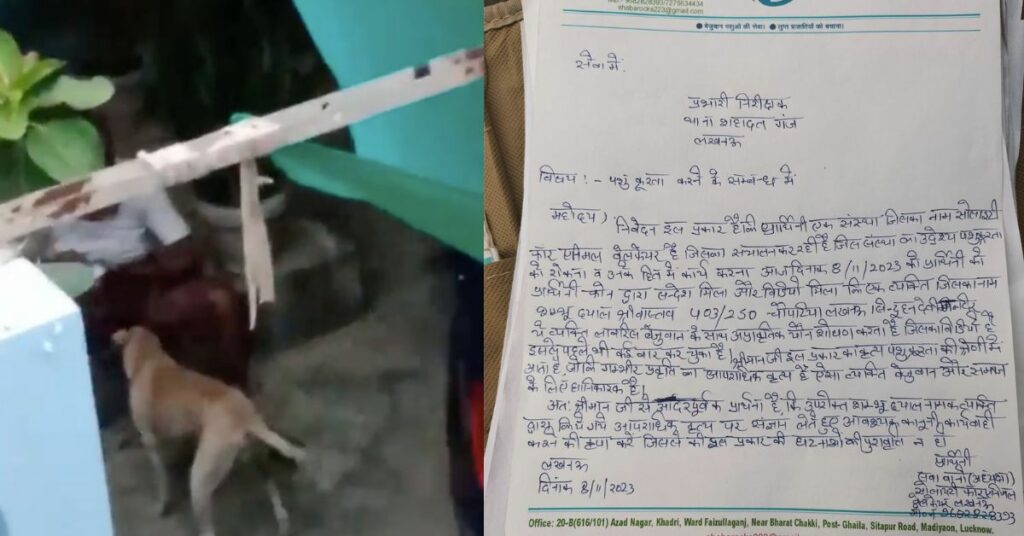 9682828393/7275634434
shabarocks223@gmail.com
● बेजुबान पशुओं की सेवा। ● लुप्त प्रजातियों को बचाना।
सेवा में,
प्रभारी निरीक्षक
थाना शहादत गंज
लखनऊ
विषय :- पशु क्रूरता करने के सम्बन्ध में
महोदय,
निवेदन इस प्रकार है कि प्रार्थिनी एक संस्था जिसका नाम
फॉर एनिमल वेलफेयर है जिसका संचालन कर रही है जिस संस्था का उद्देश्य पशु क्रूरता
को रोकना व उनके हित में कार्य करना आज दिनांक 8/11/2023 को प्रार्थिनी को
प्रार्थिनी फोन द्वारा सन्देश मिला और विडियो मिला कि एक व्यक्ति जिसका नाम
शम्भू दयाल श्रीवास्तव 403/250 लखनऊ
ये व्यक्ति लावारिस बेजुबान के साथ अप्राकृतिक यौन शोषण करता है जिसका विडियो है
इससे पहले भी कई बार कर चुका है। श्रीमान जी इस प्रकार का कृत्य पशु क्रूरता की श्रेणी में
आता है, जोकि गम्भीर प्रवृति का आपराधिक कृत्य है ऐसा व्यक्ति बेजुबान और समाज
के लिए हानिकारक है।
अतः श्रीमान जी से आदरपूर्वक प्रार्थना है, कि उपरोक्त शम्भू दयाल नामक व्यक्ति
द्वारा किये गये आपराधिक कृत्य पर संज्ञान लेते हुए आवश्यक कानूनी कार्यवाही
करने की कृपा करें जिससे की इस प्रकार की घटनाओं की पुनरावृत्ति न हो
लखनऊ
दिनांक 8/11/2023
प्रार्थिनी
(अध्यक्ष)
लखनऊ
9682828393
Office: 20-B(616/101) Azad Nagar, Khadri, Ward Faizullaganj, Near Bharat Chakki, Post- Ghaila, Sitapur Road, Madiyaon, Lucknow.